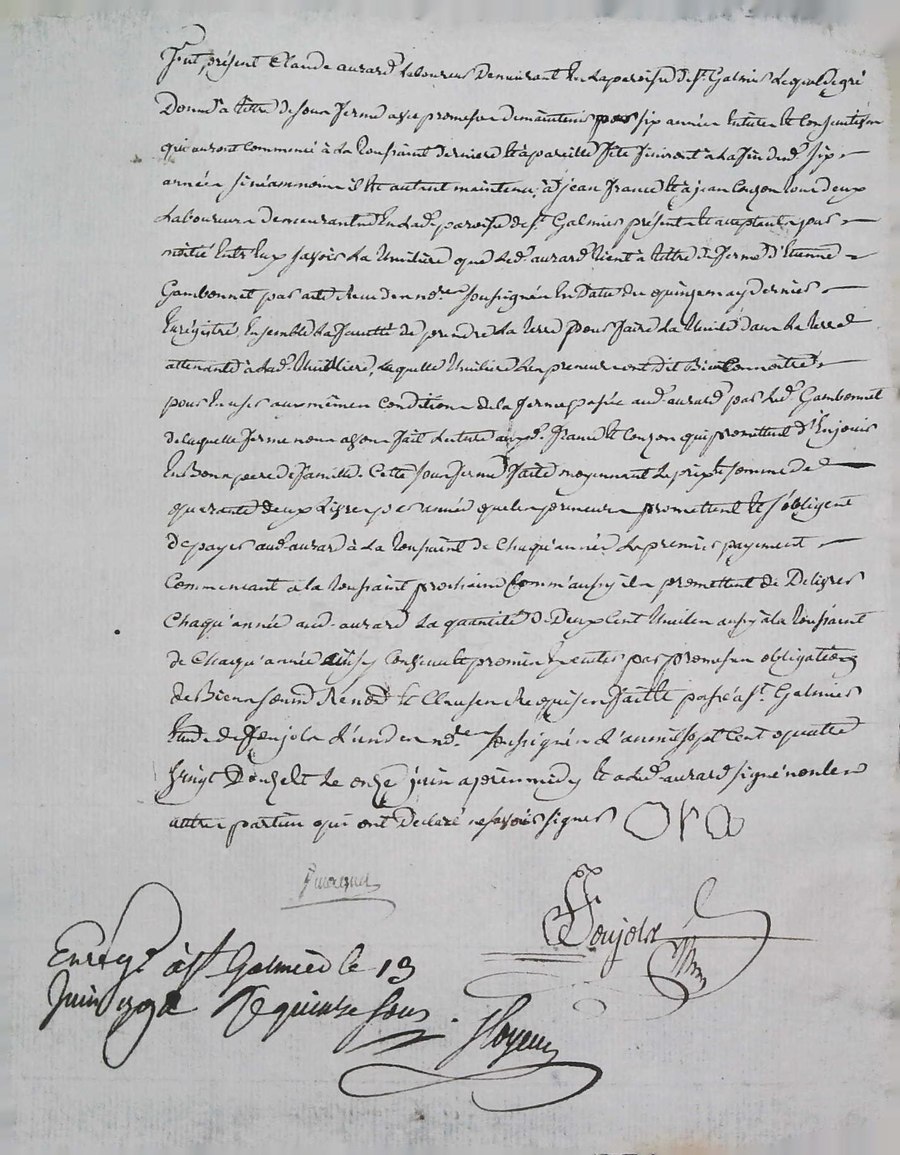 Fut présent Claude aurard Laboureur Demeurant En La paroisse de St. Galmier Lequel de gré
Donne à titre de sous ferme avec promesse de maintenir pour six année Entiere Et Consécutives
qui auront Commencé à La toussaint derniere Et à pareille fête finiront à La fin des d. six
année si néammoins il Est autant maintenu, à jean france Et à jean Couzon tous deux
Laboureurs demeurants En Lad. paroisse de St. Galmier présents Et acceptants par
moitié Entre Eux savoir La tuiliere que Led. aurard tient à titre de ferme d'Etienne
Gambonnet par acte Reçu den nore. soussignée En Date du quinze may dernier
Enregistré, Ensemble La faculté de prendre La terre pour faire La tuile dans La terre
attenante à Lad. tuilliere, Laquelle tuiliere Les preneurs ont dit Bien Connoitre
pour En user aux mêmes Conditions de la ferme passée aud. aurard par Led. Gambonnet
de laquelle ferme nous avons fait Lecture auxd. france Et Couzon qui promettent d'En jouir
En Bons peres de famille. Cette sous ferme faite moyennant Le prix Et somme de
quarante deux Livres par année que les preneurs promettent Et s'obligent
de payer aud. aurard à La toussaint de Chaqu'année Le premier payement
Commencant a la toussaint prochaine Comm'aussy ils promettent de Delivrer
Chaqu'année aud. aurard La quantité de Deux Cent tuiles aussy à la toussaint
de Chaqu'année ainsy Convenu Et promis Executer par promesses obligations
de Biens soumd. Renod. Et Clauses Requises fait Et passé a St. Galmier
Etude de Foujols L'un des nores. soussignés L'an mil sept Cent quatre
vingt Douze Et Le onze juin après midy Et a Led. aurard signé non les
autres parties qui ont Declaré ne savoir signer
Foujols
Enrégé. à St. Galmier le 13
Juin 1792 Rs quinze sous.